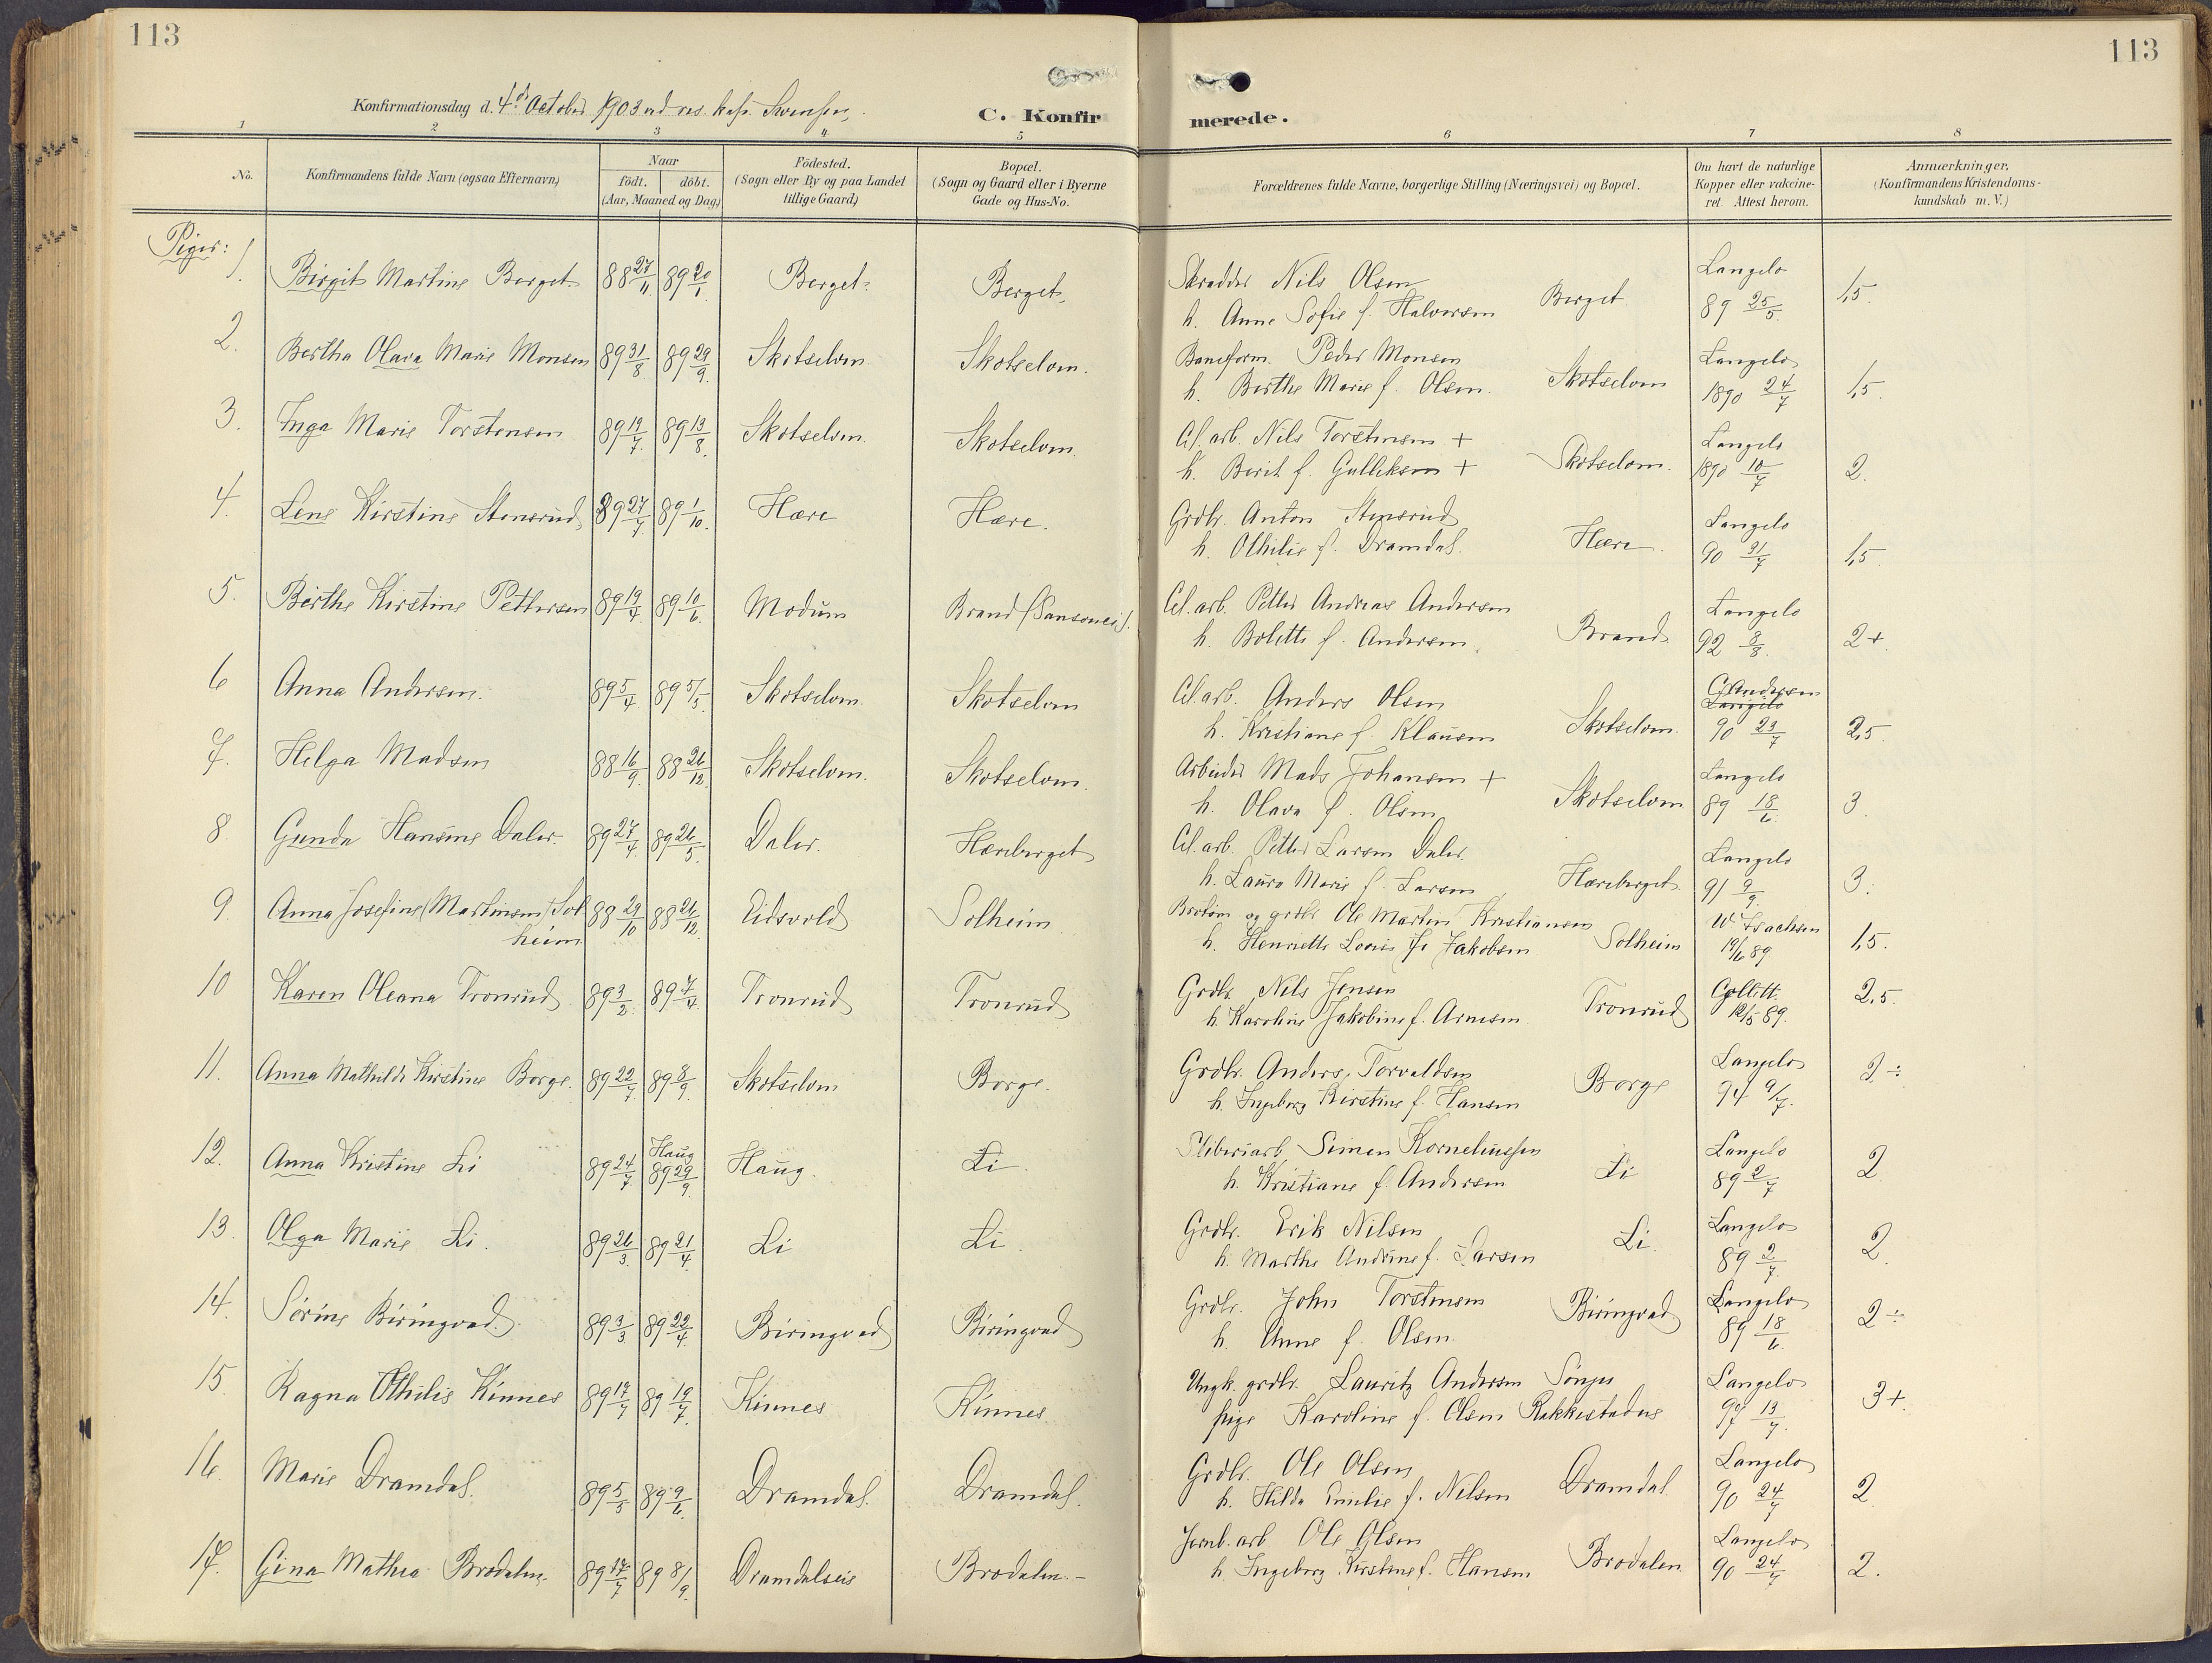 113
113
Konfirmationsdag d. 4de October 1903 ved res. kap. Svensen
C. Konfirmerede.
1 2 3 4 5 6 7 8
No. Konfirmandens fulde Navn (ogsaa Efternavn) Naar födt. döbt. (Aar, Maaned og Dag) Födested. (Sogn eller By og paa Landet tillige Gaard) Bopæl. (Sogn og Gaard eller i Byerne Gade og Hus-No. Forældrenes fulde Navne, borgerlige Stilling (Næringsvei) og Bopæl. Om havt de naturlige Kopper eller vakcineret. Attest herom. Anmærkninger. (Konfirmandens Kristendomskundskab m. V.)
Piger:
1. Birgit Martine Berget 88 27/11 89 20/1. Berget. Berget. Skrædder Nils Olsen Berget Langelo 1,5.
h. Anne Sofie f. Halvorsen 89 25/5.
2. Bertha Olava Marie Monsen 89 31/8 89 29/9. Skotselven. Skotselven. Baneform. Peder Monsen Skotselven Langelo 1,5.
h. Berthe Marie f. Olsen. 1890 24/7
3. Inga Marie Torstensen 89 19/7. 89 13/8. Skotselven. Skotselven. Cel. arb. Nils Torstensen + Skotselven. Langelo 2.
h. Berit f. Gulliksen + 1890 10/7
4. Lene Kirstine Stensrud 89 27/7. 89 1/10. Hære Hære. Grdbr. Anton Stensrud Hære. Langelo 1,5
h. Othilie f. Dramdal. 90 31/7
5. Berthe Kirstine Pettersen 89 19/4. 89 10/6. Modum Brand Cel. arb. Petter Andreas Andersen Brand Langelo 2+.
h. Bolette f. Andersen. 92 8/8.
6 Anna Andersen. 89 5/4 89 5/5. Skotselven. Skotselven Cel. arb. Anders Olsen Skotselven. C. Andersen 2,5
Langelo
h. Kristiane f. Klausen 90 23/7
7. Helga Madsen 88 16/9. 88 26/12. Skotselven. Skotselven. Arbeider Mads Johansen + Skotselven Langelo 3.
h. Olava f. Olsen 89 18/6.
8 Gunda Hansine Daler. 89 27/4. 89 26/5. Daler. Hæreberget Cel. arb. Petter Larsen Daler. Hæreberget. Langelo 3.
h. Laura Marie f. Larsen 91 9/9.
9. Anna Josefine (Martinsen) Sol 88 29/10 88 26/12. Eidsvold Solheim og grdbr. Ole Martin Kristiansen W. Isachsen 1,5.
heim h. Henriette Lovise f. Jakobsen Solheim 19/6 89
10 Karen Oleana Tronrud 89 3/2. 89 7/4. Tronrud Tronrud Grdbr. Nils Jensen Tronrud Collett. 2,5.
h. Karoline Jakobine f. Arnesen 12/5 89.
11. Anna Mathilde Kirstine Borge. 89 22/7 89 8/9. Skotselven Borge. Grdbr. Anders Torvaldsen Borge Langelo 2÷
h. Ingeborg Kirstine f. Hansen 94 9/7.
12. Anna Kristine Li 89 24/7 Haug 89 29/9. Haug. Li Sliberiarb. Simen Korneliussen Li Langelo 2
h. Kristiane f. Andersen 89 2/7
13. Olga Marie Li. 89 26/3. 89 21/4. Li Li. Grdbr. Erik Nilsen Li. Langelo 2.
h. Marthe Andrine f. Larsen 89 2/7.
14. Sörine Biringvad. 89 3/3 89 22/4. Biringvad Biringvad Grdbr. John Torstensen Biringvad Langelo 2÷
h. Anne f. Olsen. 89 18/6.
15 Ragna Othilie Kinnes 89 17/4 89 19/7. Kinnes Kinnes Ungk. grdbr. Lauritz Andersen Langelo 3+.
pige Karoline f. Olsen 97 13/7.
16. Marie Dramdal. 89 5/5 89 9/6. Dramdal. Dramdal. Grdbr. Ole Olsen Dramdal Langelo 2.
h. Hilda Emilie f. Nilsen 90 24/7
17. Gina Mathea Brodalen. 89 17/7 89 8/9. Dramdalseie Brodalen. Jernb. arb Ole Olsen Brodalen Langelo 2.
h. Ingeborg Kirstine f. Hansen 90 24/7